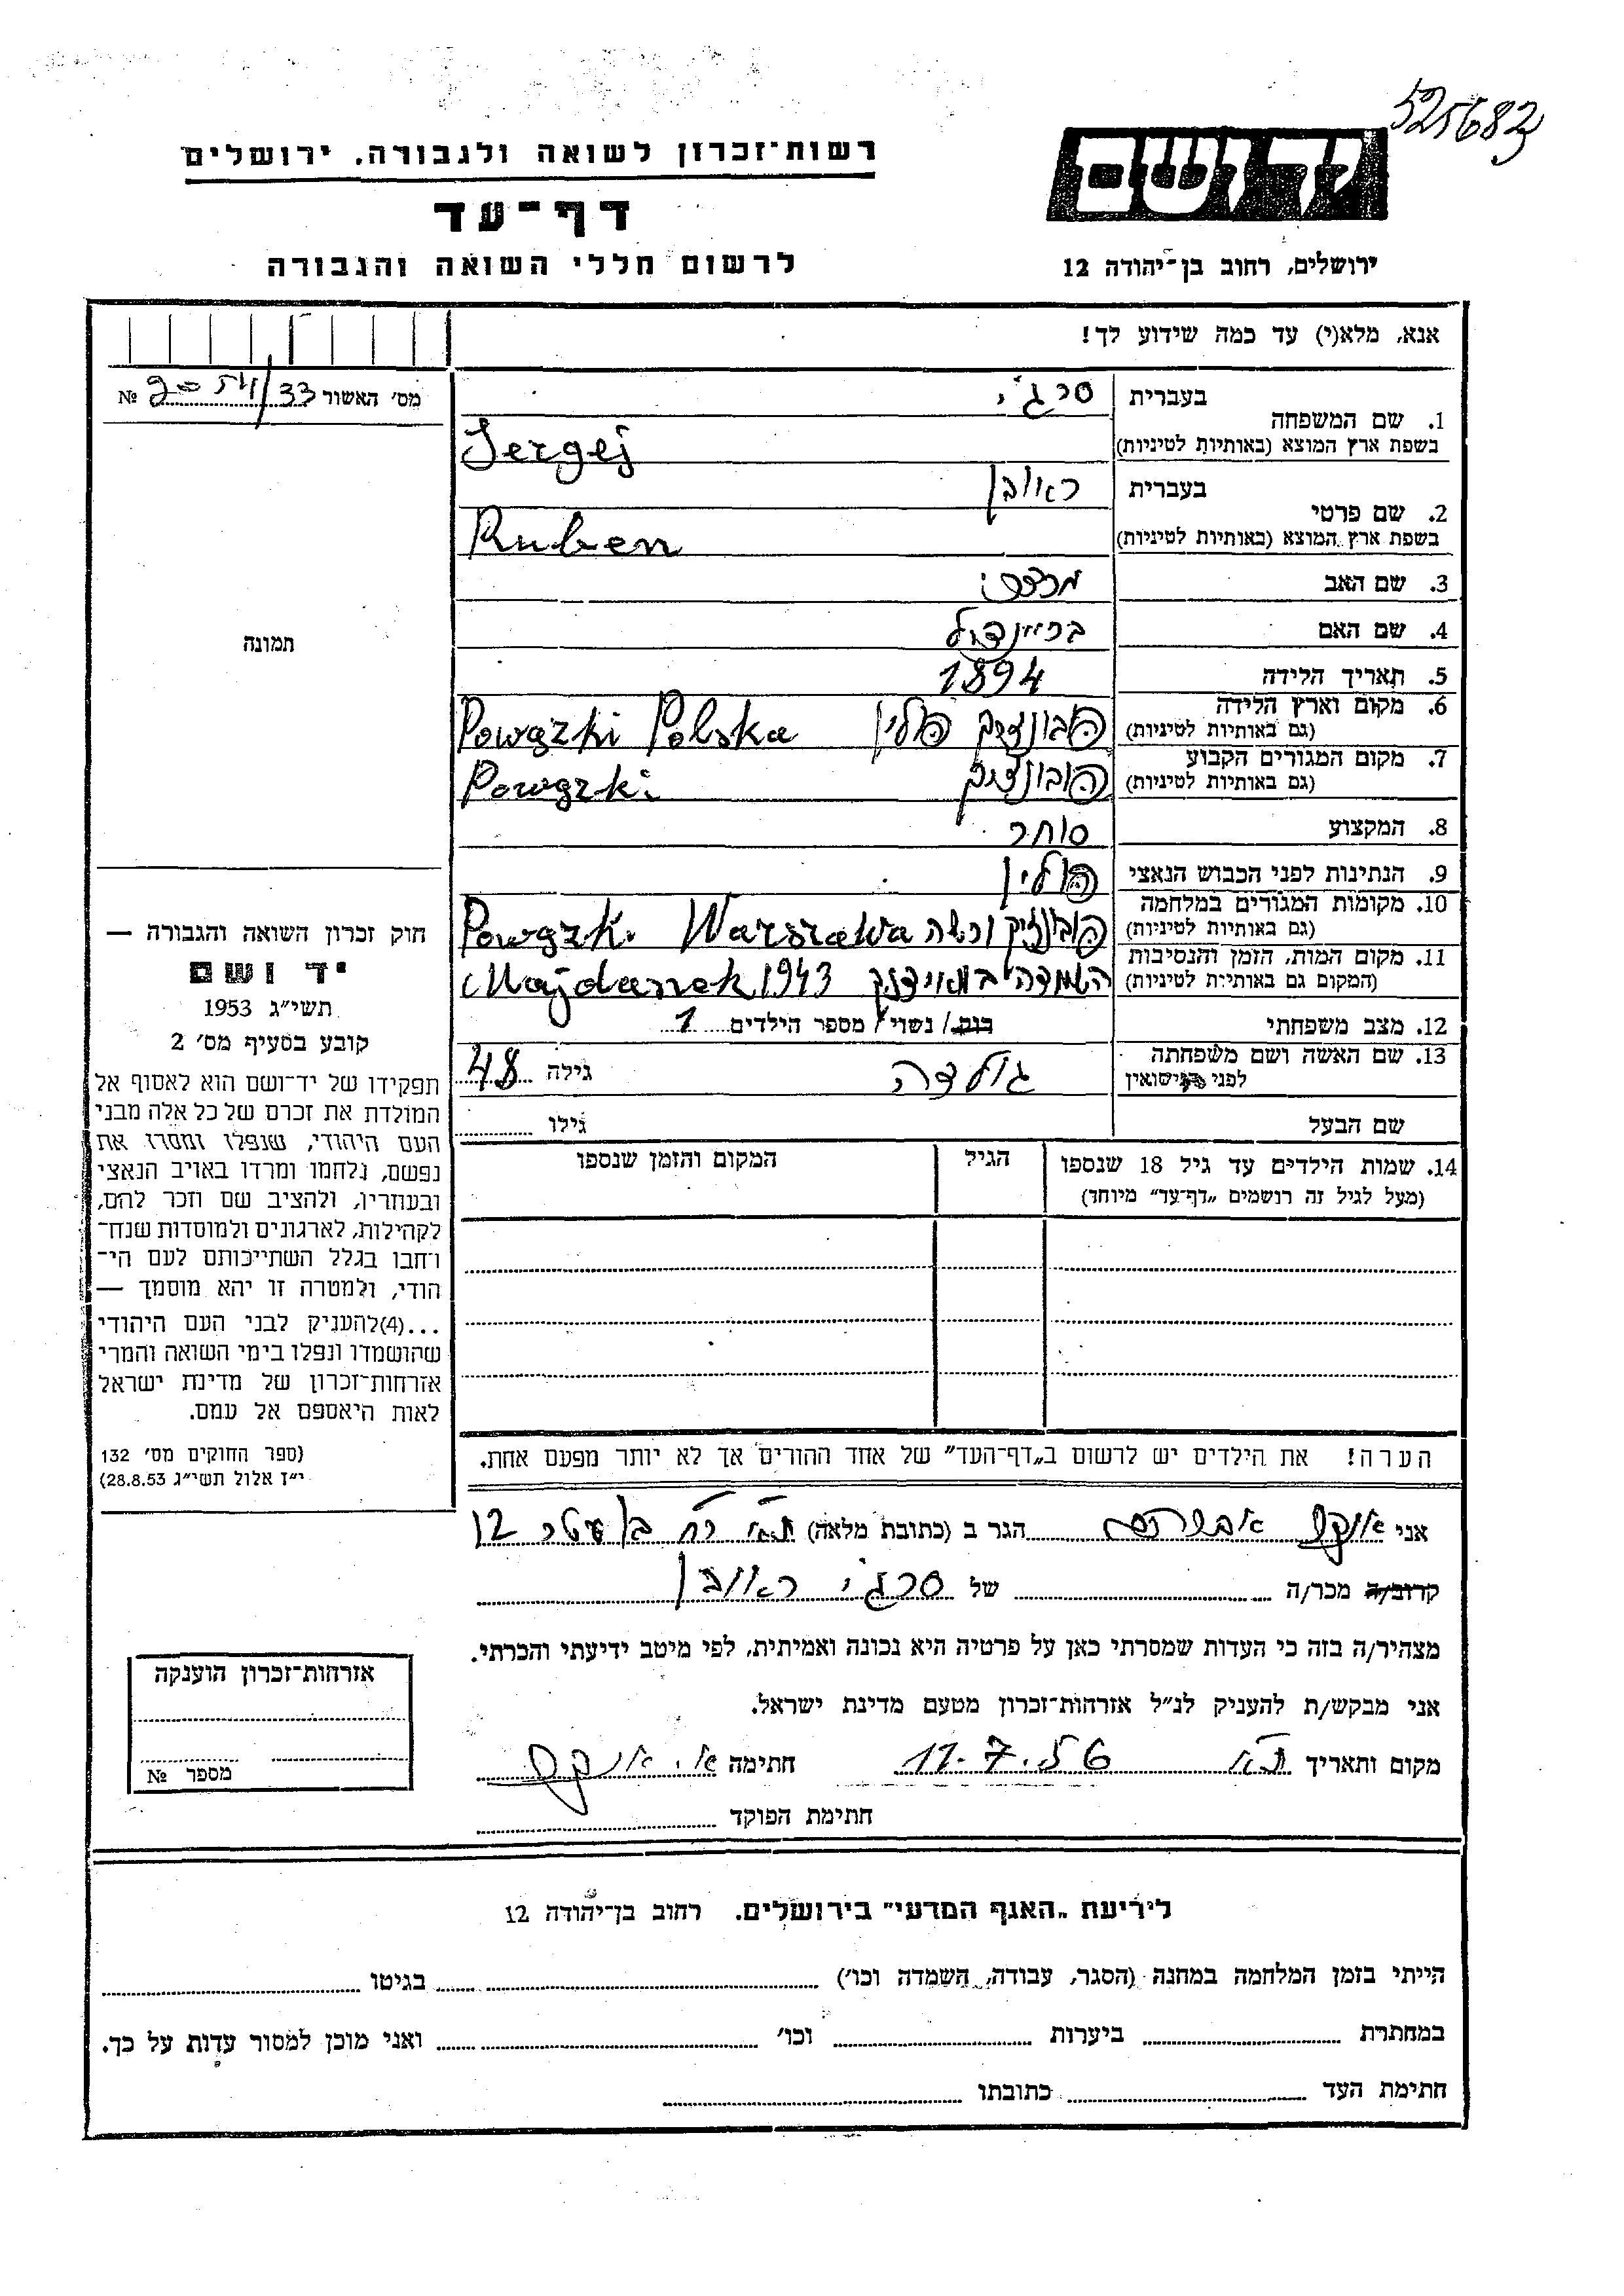 525683
רשות־זכרון לשואה ולגבורה. ירושלים
דף־עד
לרשום חללי השואה והגבורה
יד ושם
ירושלים, רחוב בן־יהודה 12
אנא, מלא(י) עד כמה שידוע לך!
מס׳ האשור 33/ № 
1. שם המשפחה בעברית סרג׳י
בשפת ארץ המוצא (באותיות לטיניות) Sergej
2. שם פרטי בעברית ראובן
בשפת ארץ המוצא (באותיות לטיניות) Ruben
3. שם האב מרדכי
4. שם האם בריינדל
5. תאריך הלידה 1894
6. מקום וארץ הלידה פולין Powązki Polska
(גם באותיות לטיניות)
7. מקום המגורים הקבוע Powązki
(גם באותיות לטיניות)
8. המקצוע סוחר
9. הנתינות לפני הכבוש הנאצי פולין
10. מקומות המגורים במלחמה ורשה Powązk. Warszawa
(גם באותיות לטיניות)
11. מקום המות, הזמן והנסיבות Majdanek 1943
(המקום גם באותיות לטיניות)
12. מצב משפחתי רווק/ נשוי/ מספר הילדים 1
13. שם האשה ושם משפחתה גולדה גילה 48
לפני הנישואין
שם הבעל גילו
14. שמות הילדים עד גיל 18 שנספו הגיל המקום והזמן שנספו
(מעל לגיל זה רושמים „דף־עד״ מיוחד)
הערה! את הילדים יש לרשום ב„דף־העד״ של אחד ההורים אך לא יותר מפעם אחת.
תמונה
חוק זכרון השואה והגבורה —
יד ושם
תשי״ג 1953
קובע בסעיף מס׳ 2
תפקידו של יד־ושם הוא לאסוף אל
המולדת את זכרם של כל אלה מבני
העם היהודי, שנפלו ומסרו את
נפשם, נלחמו ומרדו באויב הנאצי
ובעוזריו, ולהציב שם וזכר להם,
לקהילות, לארגונים ולמוסדות שנח־
רבו בגלל השתייכותם לעם הי־
הודי, ולמטרה זו יהא מוסמך —
...(4)להעניק לבני העם היהודי
שהושמדו ונפלו בימי השואה והמרי
אזרחות־זכרון של מדינת ישראל
לאות היאספם אל עמם.
(ספר החוקים מס׳ 132
י״ז אלול תשי״ג 28.8.53)
אני אברהם הגר ב (כתובת מלאה) ת״א רח׳ 12
קרוב/ה מכר/ה של סרג׳י ראובן
מצהיר/ה בזה כי העדות שמסרתי כאן על פרטיה היא נכונה ואמיתית, לפי מיטב ידיעתי והכרתי.
אני מבקש/ת להעניק לנ״ל אזרחות־זכרון מטעם מדינת ישראל.
מקום ותאריך ת״א 11.7.56 חתימה
חתימת הפוקד
אזרחות־זכרון הוענקה
מספר №
לידיעת „האגף המדעי״ בירושלים. רחוב בן־יהודה 12
הייתי בזמן המלחמה במחנה (הסגר, עבודה, השמדה וכו׳) בגיטו
במחתרת ביערות וכו׳ ואני מוכן למסור עדות על כך.
חתימת העד כתובתו